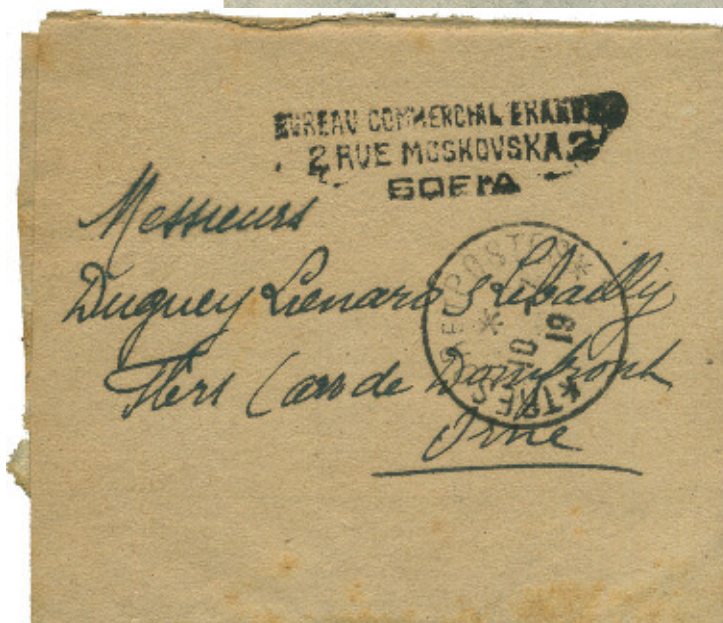 BUREAU COMMERCIAL
2 RUE MOSKOVSKA 2
SOFIA
Messieurs
Duguey Lienard & Lebailly
Flers (arr de Domfront
Orne
* TRESOR ET POSTES *
19